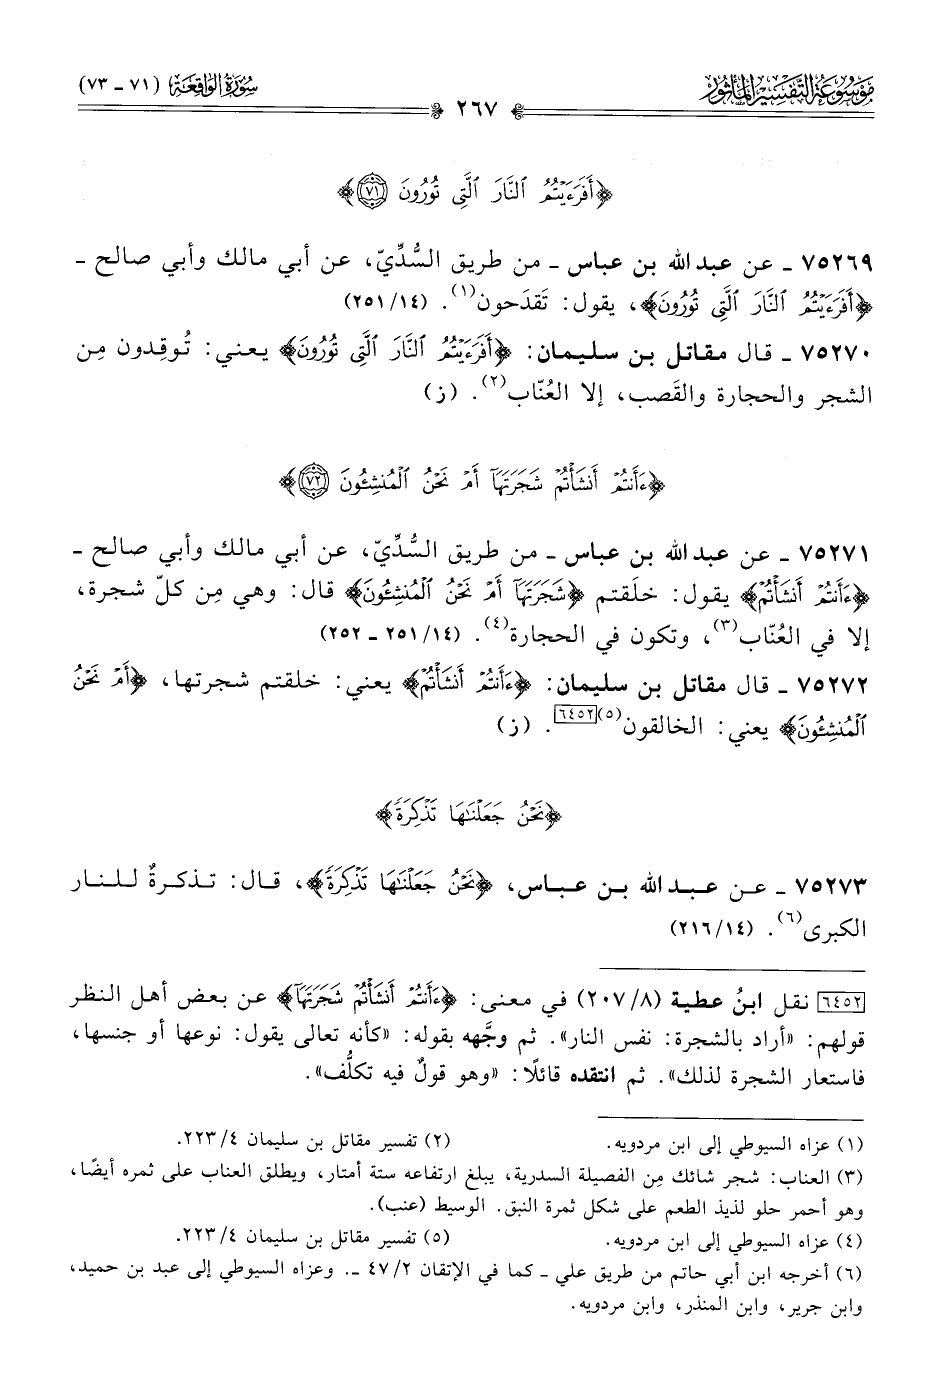 موسوعة التفسير المأثور
سورة الواقعة (٧١ - ٧٣)
٢٦٧
﴿أَفَرَءَيْتُمُ ٱلنَّارَ ٱلَّتِى تُورُونَ ٧١﴾
٧٥٢٦٩ - عن عبد الله بن عباس - من طريق السُّدِّيّ، عن أبي مالك وأبي صالح -
﴿أَفَرَءَيْتُمُ ٱلنَّارَ ٱلَّتِى تُورُونَ﴾، يقول: تَقدَحون(١). (١٤/٢٥١)
٧٥٢٧٠ - قال مقاتل بن سليمان: ﴿أَفَرَءَيْتُمُ ٱلنَّارَ ٱلَّتِى تُورُونَ﴾ يعني: تُوقِدون مِن
الشجر والحجارة والقَصب، إلا العُنّاب(٢). (ز)
﴿ءَأَنتُمْ أَنشَأْتُمْ شَجَرَتَهَآ أَمْ نَحْنُ ٱلْمُنشِـُٔونَ ٧٢﴾
٧٥٢٧١ - عن عبد الله بن عباس - من طريق السُّدِّيّ، عن أبي مالك وأبي صالح -
﴿ءَأَنتُمْ أَنشَأْتُمْ﴾ يقول: خلَقتم ﴿شَجَرَتَهَآ أَمْ نَحْنُ ٱلْمُنشِـُٔونَ﴾ قال: وهي مِن كلّ شجرة،
إلا في العُنّاب(٣)، وتكون في الحجارة(٤). (١٤/٢٥١ - ٢٥٢)
٧٥٢٧٢ - قال مقاتل بن سليمان: ﴿ءَأَنتُمْ أَنشَأْتُمْ﴾ يعني: خلقتم شجرتها، ﴿أَمْ نَحْنُ
ٱلْمُنشِـُٔونَ﴾ يعني: الخالقون(٥)[٦٤٥٢]. (ز)
﴿نَحْنُ جَعَلْنَٰهَا تَذْكِرَةً﴾
٧٥٢٧٣ - عن عبد الله بن عباس، ﴿نَحْنُ جَعَلْنَٰهَا تَذْكِرَةً﴾، قال: تذكرةٌ للنار
الكبرى(٦). (١٤/٢١٦)
[٦٤٥٢] نقل ابنُ عطية (٨/٢٠٧) في معنى: ﴿ءَأَنتُمْ أَنشَأْتُمْ شَجَرَتَهَآ﴾ عن بعض أهل النظر
قولهم: «أراد بالشجرة: نفس النار». ثم وجَّهه بقوله: «كأنه تعالى يقول: نوعها أو جنسها،
فاستعار الشجرة لذلك». ثم انتقده قائلًا: «وهو قولٌ فيه تكلُّف».
(١) عزاه السيوطي إلى ابن مردويه. (٢) تفسير مقاتل بن سليمان ٤/٢٢٣.
(٣) العناب: شجر شائك مِن الفصيلة السدرية، يبلغ ارتفاعه ستة أمتار، ويطلق العناب على ثمره أيضًا،
وهو أحمر حلو لذيذ الطعم على شكل ثمرة النبق. الوسيط (عنب).
(٤) عزاه السيوطي إلى ابن مردويه. (٥) تفسير مقاتل بن سليمان ٤/٢٢٣.
(٦) أخرجه ابن أبي حاتم من طريق علي - كما في الإتقان ٢/٤٧ -. وعزاه السيوطي إلى عبد بن حميد،
وابن جرير، وابن المنذر، وابن مردويه.